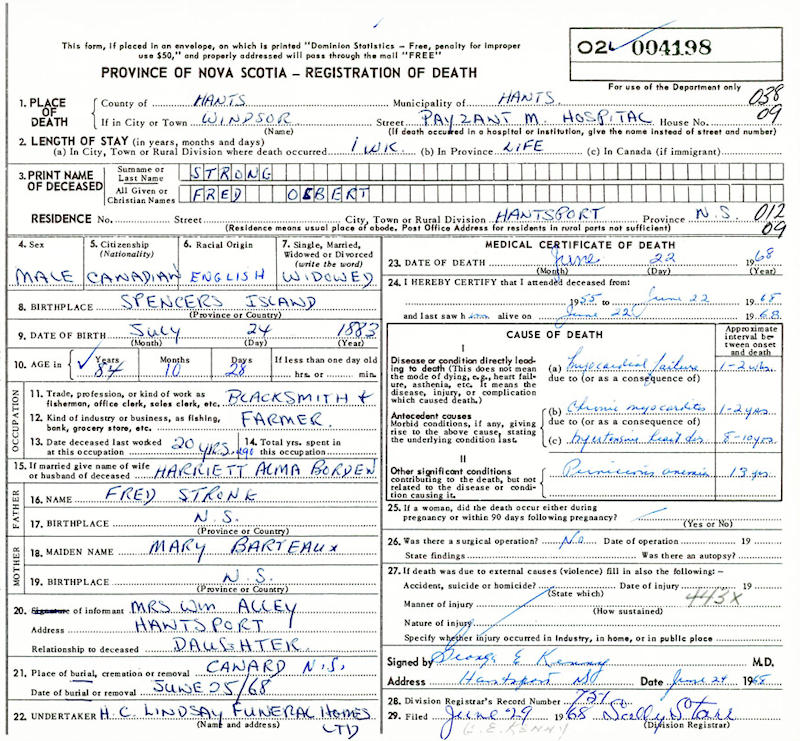 This form, if placed in an envelope, on which is printed "Dominion Statistics – Free, penalty for improper
use $50," and properly addressed will pass through the mail "FREE"
PROVINCE OF NOVA SCOTIA – REGISTRATION OF DEATH
02L 004198
For use of the Department only
1. PLACE OF DEATH County of HANTS Municipality of HANTS 038
If in City or Town WINDSOR Street PAYZANT M. HOSPITAL House No. 09
(Name) (If death occurred in a hospital or institution, give the name instead of street and number)
2. LENGTH OF STAY (in years, months and days)
(a) In City, Town or Rural Division where death occurred 1 WK. (b) In Province LIFE (c) In Canada (if immigrant)
3. PRINT NAME OF DECEASED Surname or Last Name STRONG
All Given or Christian Names FRED OSBERT
RESIDENCE No. Street City, Town or Rural Division HANTSPORT Province N.S. 012
(Residence means usual place of abode. Post Office Address for residents in rural parts not sufficient) 09
4. Sex 5. Citizenship (Nationality) 6. Racial Origin 7. Single, Married, Widowed or Divorced (write the word)
MALE CANADIAN ENGLISH WIDOWED
8. BIRTHPLACE SPENCERS ISLAND
(Province or Country)
9. DATE OF BIRTH JULY 24 1883
(Month) (Day) (Year)
10. AGE in Years Months Days If less than one day old
84 10 28 hrs. or min.
OCCUPATION
11. Trade, profession, or kind of work as fisherman, office clerk, sales clerk, etc. BLACKSMITH +
12. Kind of industry or business, as fishing, bank, grocery store, etc. FARMER.
13. Date deceased last worked at this occupation 20 YRS. ago 14. Total yrs. spent in this occupation
15. If married give name of wife or husband of deceased HARRIETT ALMA BORDEN
FATHER
16. NAME FRED STRONG
17. BIRTHPLACE N.S.
(Province or Country)
MOTHER
18. MAIDEN NAME MARY BARTEAUX
19. BIRTHPLACE N.S.
(Province or Country)
20. Signature of informant MRS WM ALLEY
Address HANTSPORT
Relationship to deceased DAUGHTER
21. Place of burial, cremation or removal CANARD N.S.
Date of burial or removal JUNE 25/68
22. UNDERTAKER H.C. LINDSAY FUNERAL HOMES LTD
(Name and address)
MEDICAL CERTIFICATE OF DEATH
23. DATE OF DEATH June 22 1968
(Month) (Day) (Year)
24. I HEREBY CERTIFY that I attended deceased from:
1955 to June 22 1968
and last saw h alive on June 22 1968.
CAUSE OF DEATH
Approximate interval between onset and death
I
Disease or condition directly leading to death (This does not mean the mode of dying, e.g., heart failure, asthenia, etc. It means the disease, injury, or complication which caused death.)
(a) Myocardial failure 1-2 wks.
due to (or as a consequence of)
Antecedent causes
Morbid conditions, if any, giving rise to the above cause, stating the underlying condition last.
(b) Chronic myocarditis 1-2 yrs
due to (or as a consequence of)
(c) hypertensive heart dis 8-10 yrs.
II
Other significant conditions
contributing to the death, but not related to the disease or condition causing it.
Pernicious anemia 13 yrs.
25. If a woman, did the death occur either during
pregnancy or within 90 days following pregnancy?
(Yes or No)
26. Was there a surgical operation? No Date of operation 19
State findings Was there an autopsy?
27. If death was due to external causes (violence) fill in also the following:–
Accident, suicide or homicide? Date of injury 19
(State which)
Manner of injury 443X
(How sustained)
Nature of injury
Specify whether injury occurred in industry, in home, or in public place
Signed by George E Kenny M.D.
Address Hantsport NS Date June 24 1968
28. Division Registrar's Record Number 751
29. Filed June 29 1968 Sally Starr
(Division Registrar)
G. E. KENNY